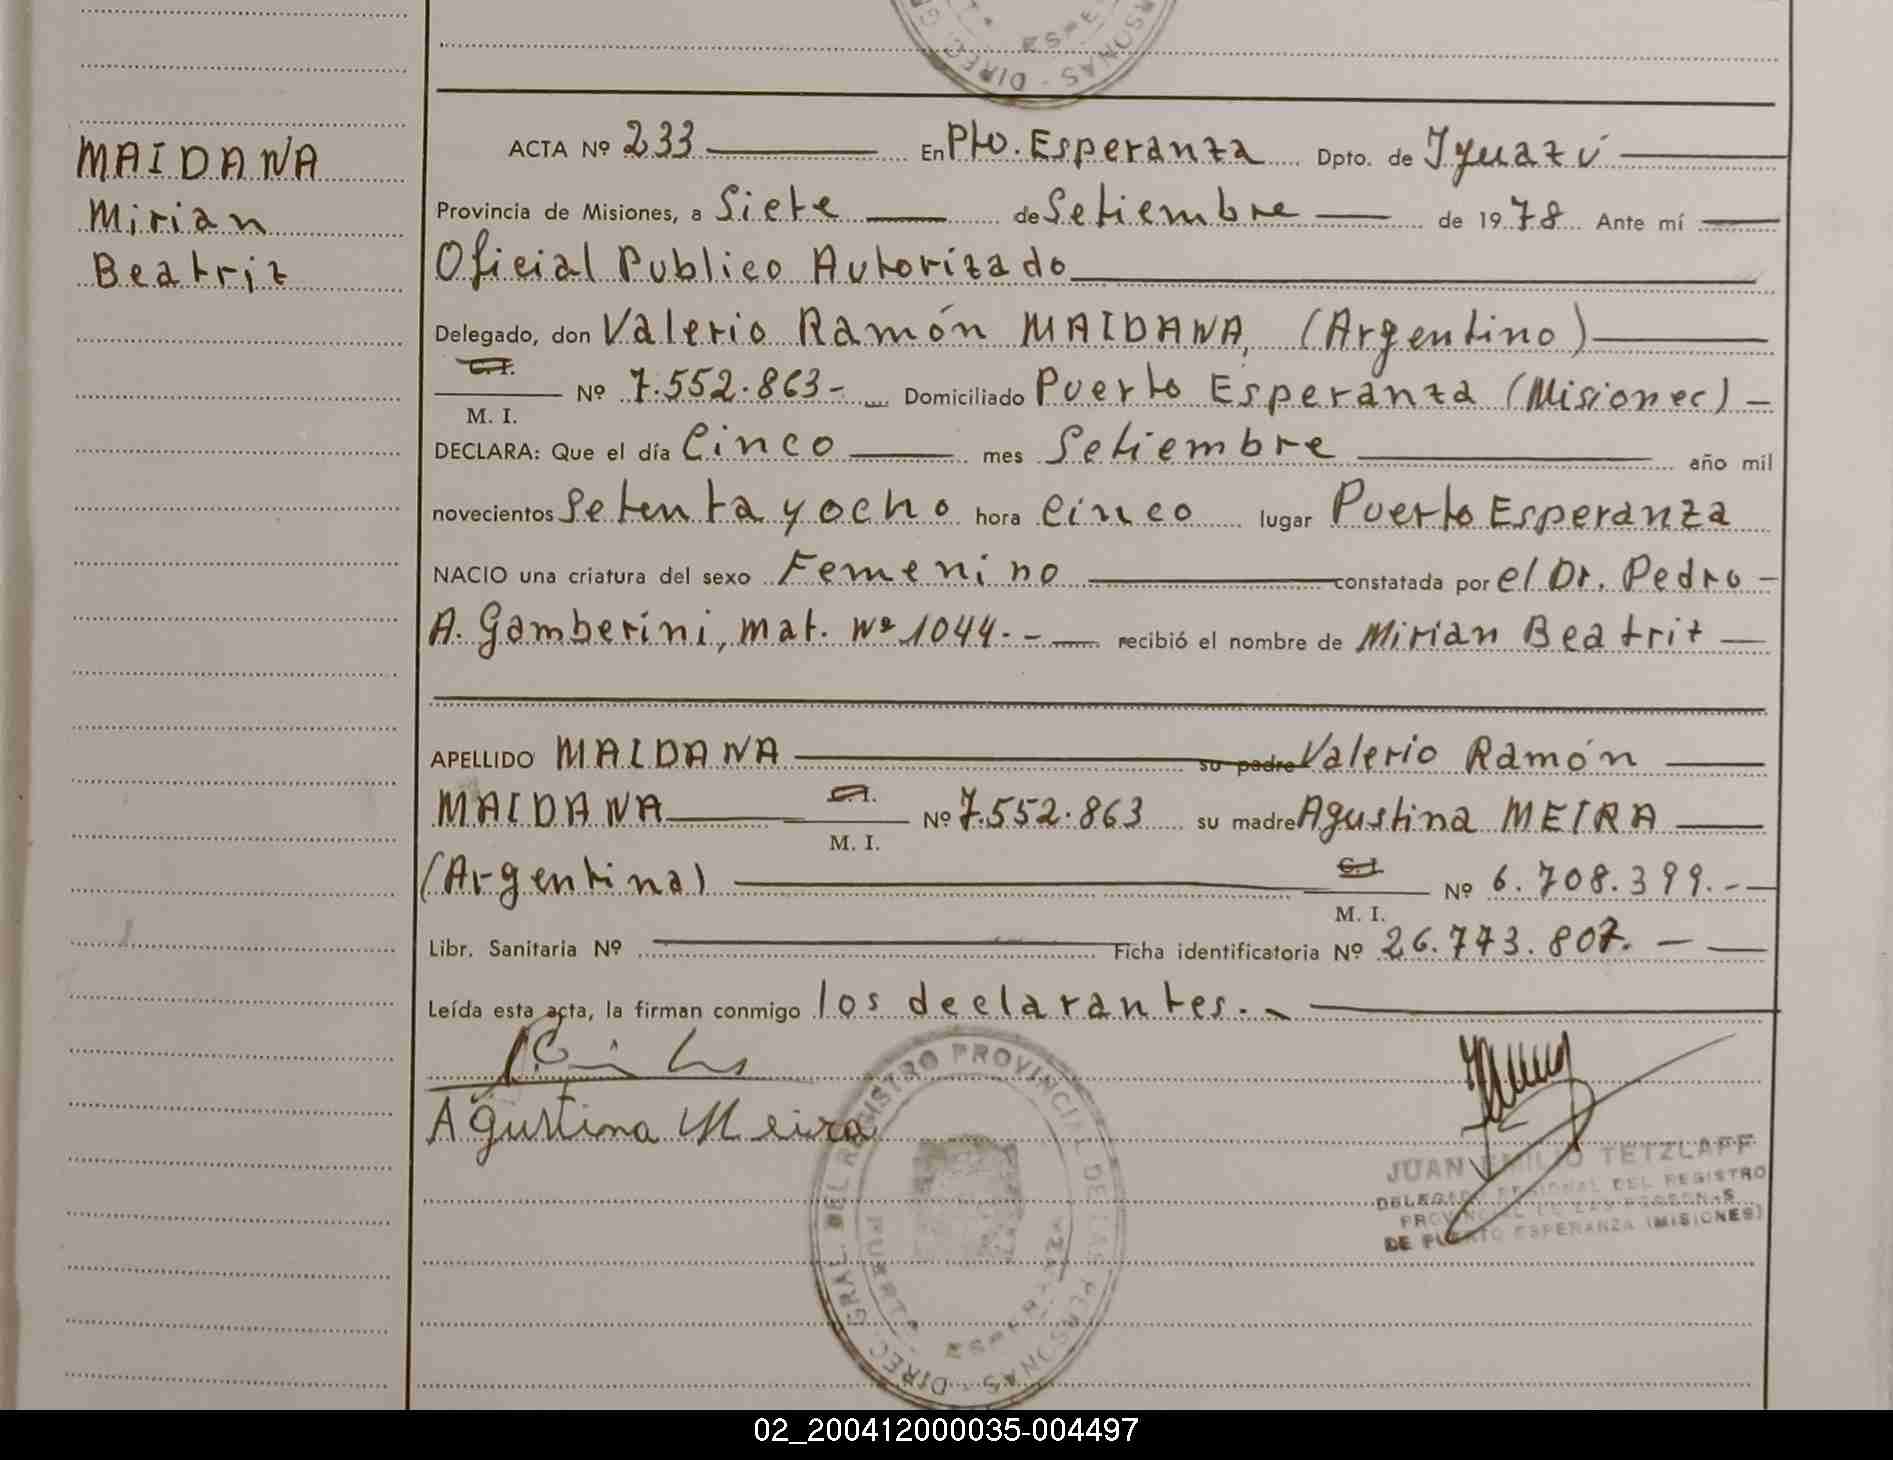 MAIDANA
Mirian
Beatriz
ACTA Nº 233 En Pto. Esperanza Dpto. de Iguazú
Provincia de Misiones, a Siete de Setiembre de 1978 Ante mí
Oficial Publico Autorizado
Delegado, don Valerio Ramón MAIDANA, (Argentino)
C.I.
M. I. Nº 7.552.863- Domiciliado Puerto Esperanza (Misiones) -
DECLARA: Que el día Cinco mes Setiembre año mil
novecientos Setenta y ocho hora Cinco lugar Puerto Esperanza
NACIO una criatura del sexo Femenino constatada por el Dr. Pedro -
A. Gamberini, mat. Nº 1044.- recibió el nombre de Mirian Beatriz
APELLIDO MAIDANA su padre Valerio Ramón
MAIDANA C.I. M. I. Nº 7.552.863 su madre Agustina MEIRA
(Argentina) C.I. M. I. Nº 6.708.399.-
Libr. Sanitaria Nº Ficha identificatoria Nº 26.773.807.-
Leída esta acta, la firman conmigo los declarantes.-
Agustina Meira
DIREC. GRAL. DEL REGISTRO PROVINCIAL DE LAS PERSONAS
PUERTO ESPERANZA
JUAN EMILIO TETZLAFF
DELEGADO REGIONAL DEL REGISTRO
PROVINCIAL DE LAS PERSONAS
DE PUERTO ESPERANZA (MISIONES)
02_200412000035-004497